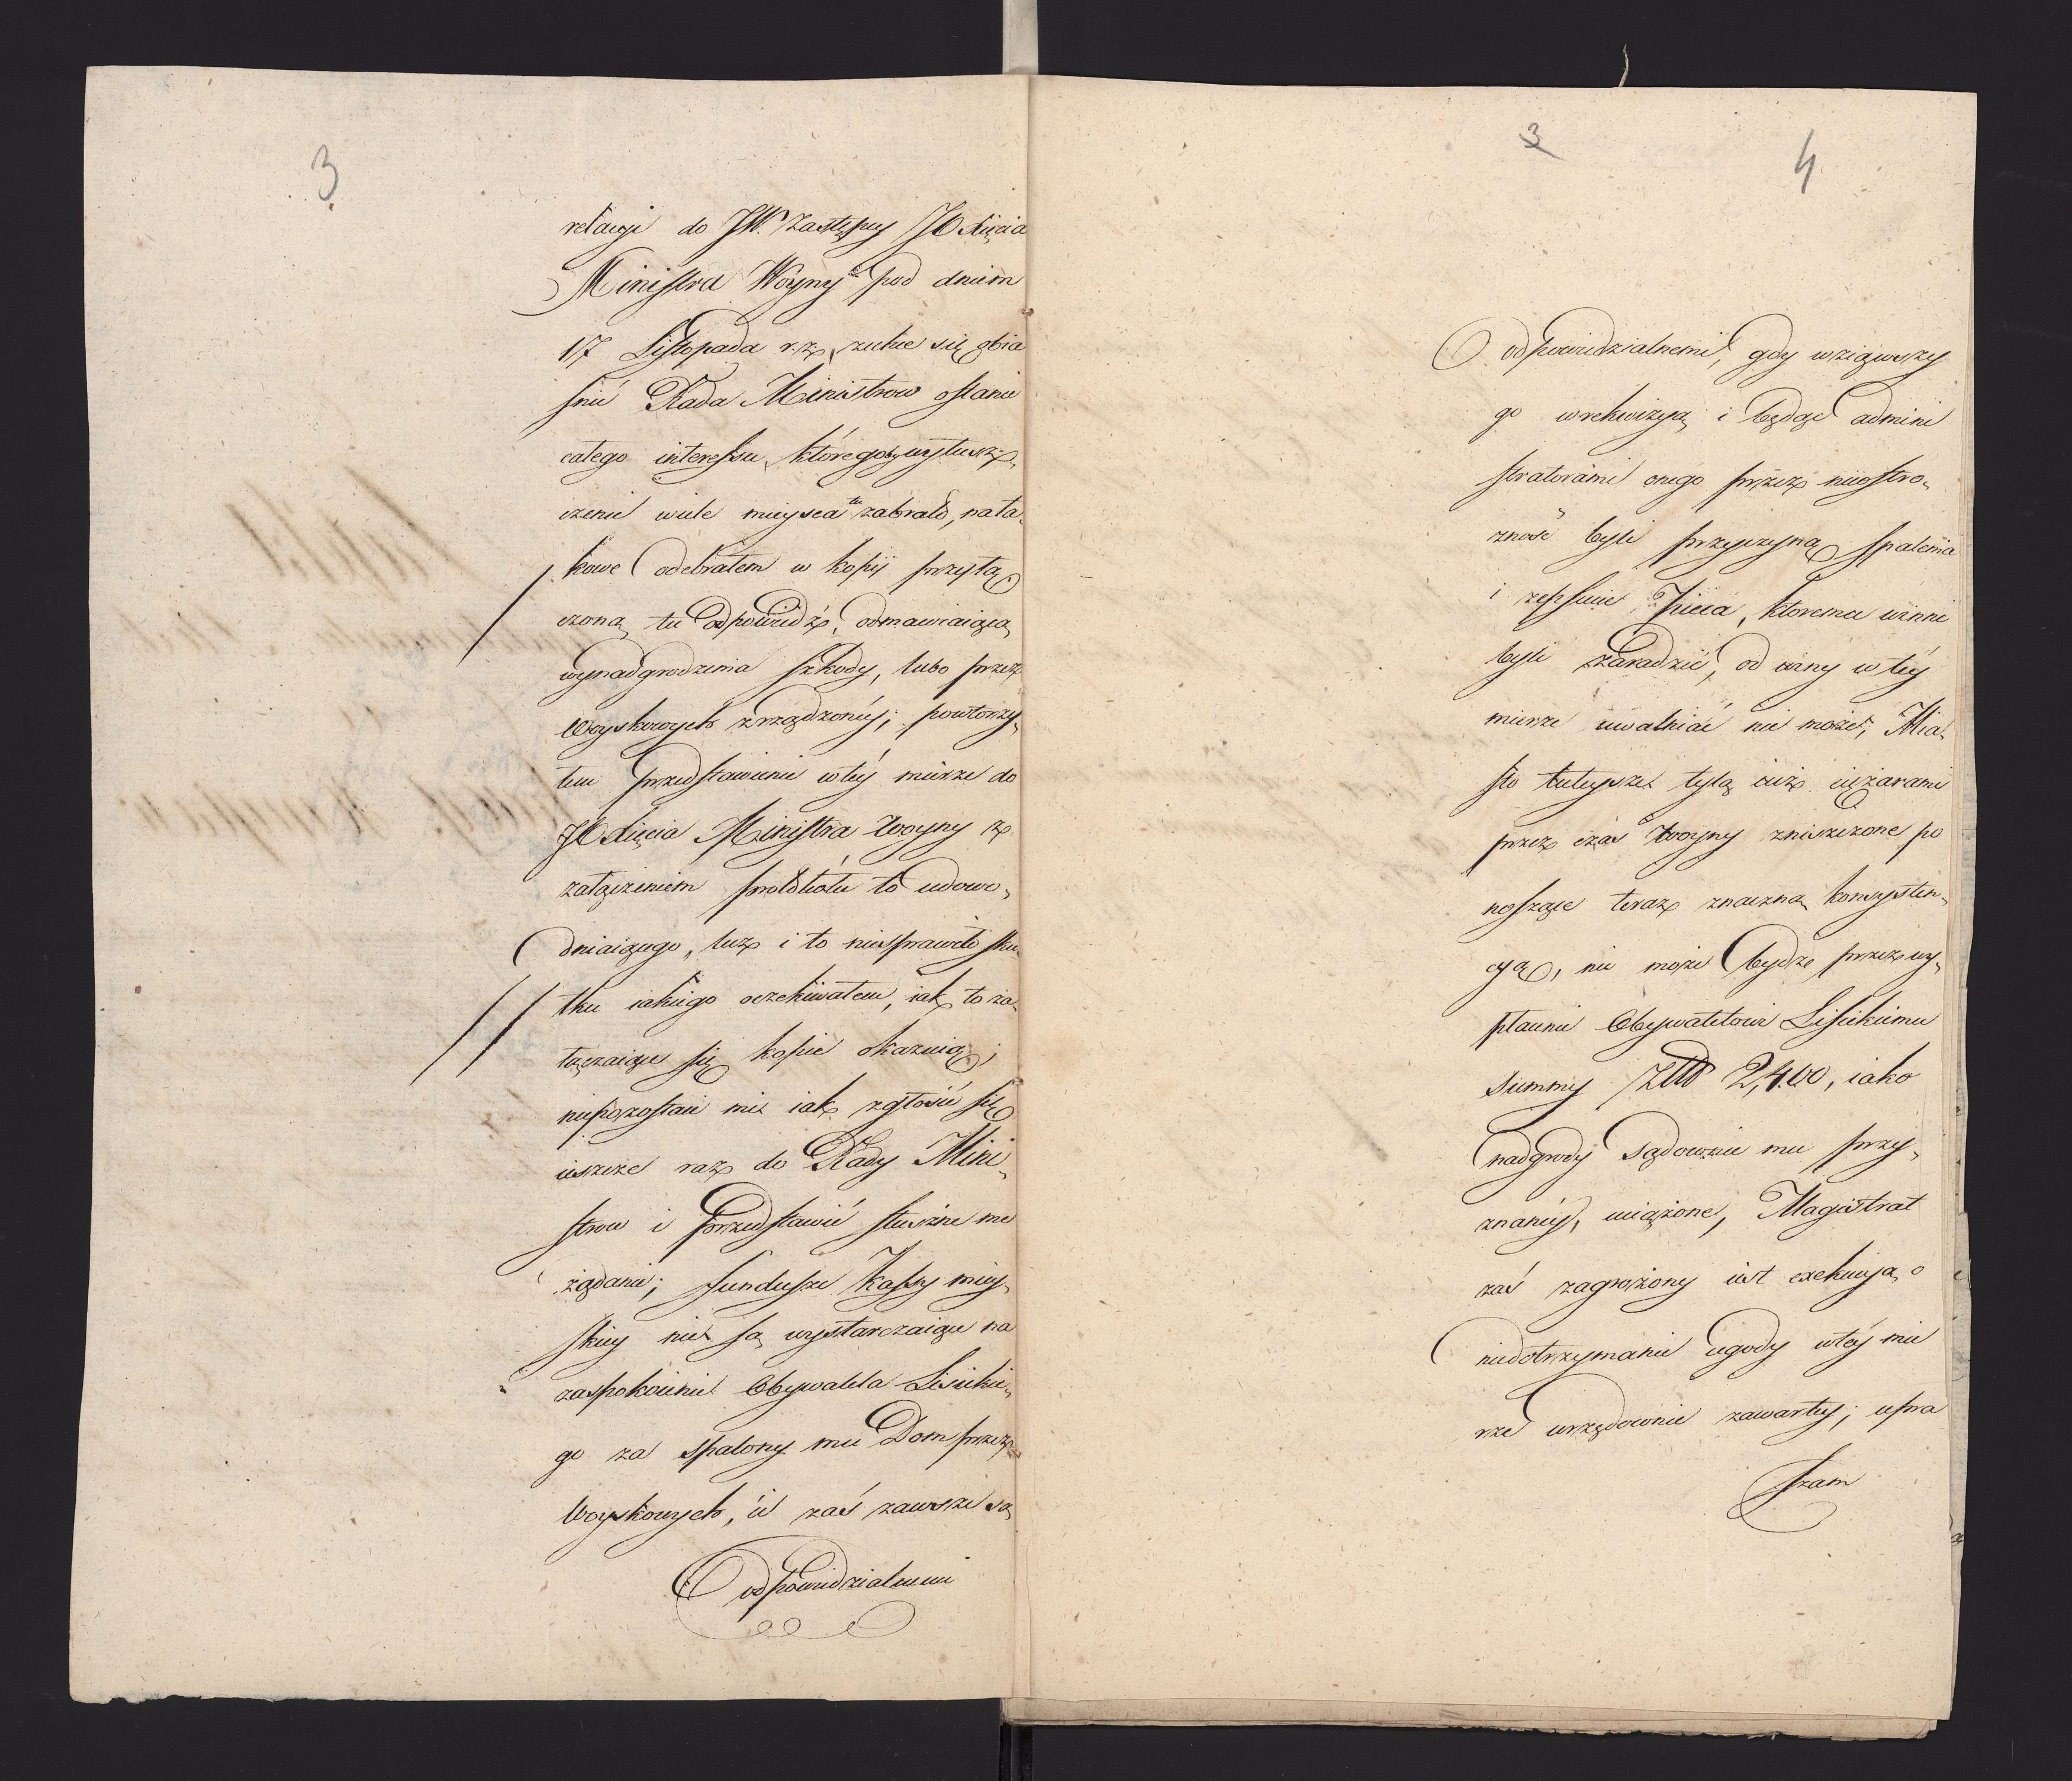 3
relacyi do JW. Zastępcy JO Xięcia
Ministra Woyny pod dniem
17 Listopada r. z. zechce się obia
śnić Rada Ministrow o stanie
całego interessu, któregoby wytuszcz
czenie wiele mieysca tu zabrało, na ta
kowe odebrałem w kopij przyłą
czoną tu odpowiedź, odmawiaiącą
wynadgrodzenia szkody, lubo przez
Woyskowych zrządzonéy; powtorzy,
łem przedstawienie w téy mierze do
JO Xięcia Ministra Woyny z
załączeniem protokółu to udowo,
dniaiącego, lecz i to niesprawiło sku
tku iakiego oczekiwałem, iak to za
łączaiące się kopie okazuią;
niepozostaie mi iak zgłosić się
ieszcze raz do Rady Mini,
strow i przedstawić słuszne me
żądanie; fundusze Kassy miey,
skiey nie są wystarczaiące na
zaspokoienie Obywatela Lisieckie,
go za spalony mu Dom przez
Woyskowych, ći zaś zawsze są
odpowiedzialnemi
3
4
odpowiedzialnemi, gdy wziąwszy
go w rekwizycyą i będąc admini
stratorami onego przez nieostro,
żność byli przyczyną spalenia
i zepsucie Pieca, ktoremu winni
byli zaradzić, od winy w téy
mierze uwalniać nie może; Mia,
sto tuteysze tylą iuż ciężarami
przez czas Woyny zniszczone po
nosząc teraz znaczną konsysten,
cyą, nie może bydź przez wy,
płacenie Obywatelowi Lisieckiemu
summy 2,400, iako
nadgrody sądownie mu przy,
znanéy, uciążone, Magistrat
zaś zagrożony iest exekucyą o
niedotrzymanie ugody w téy mie
rze urzędownie zawartéy; upra
szam